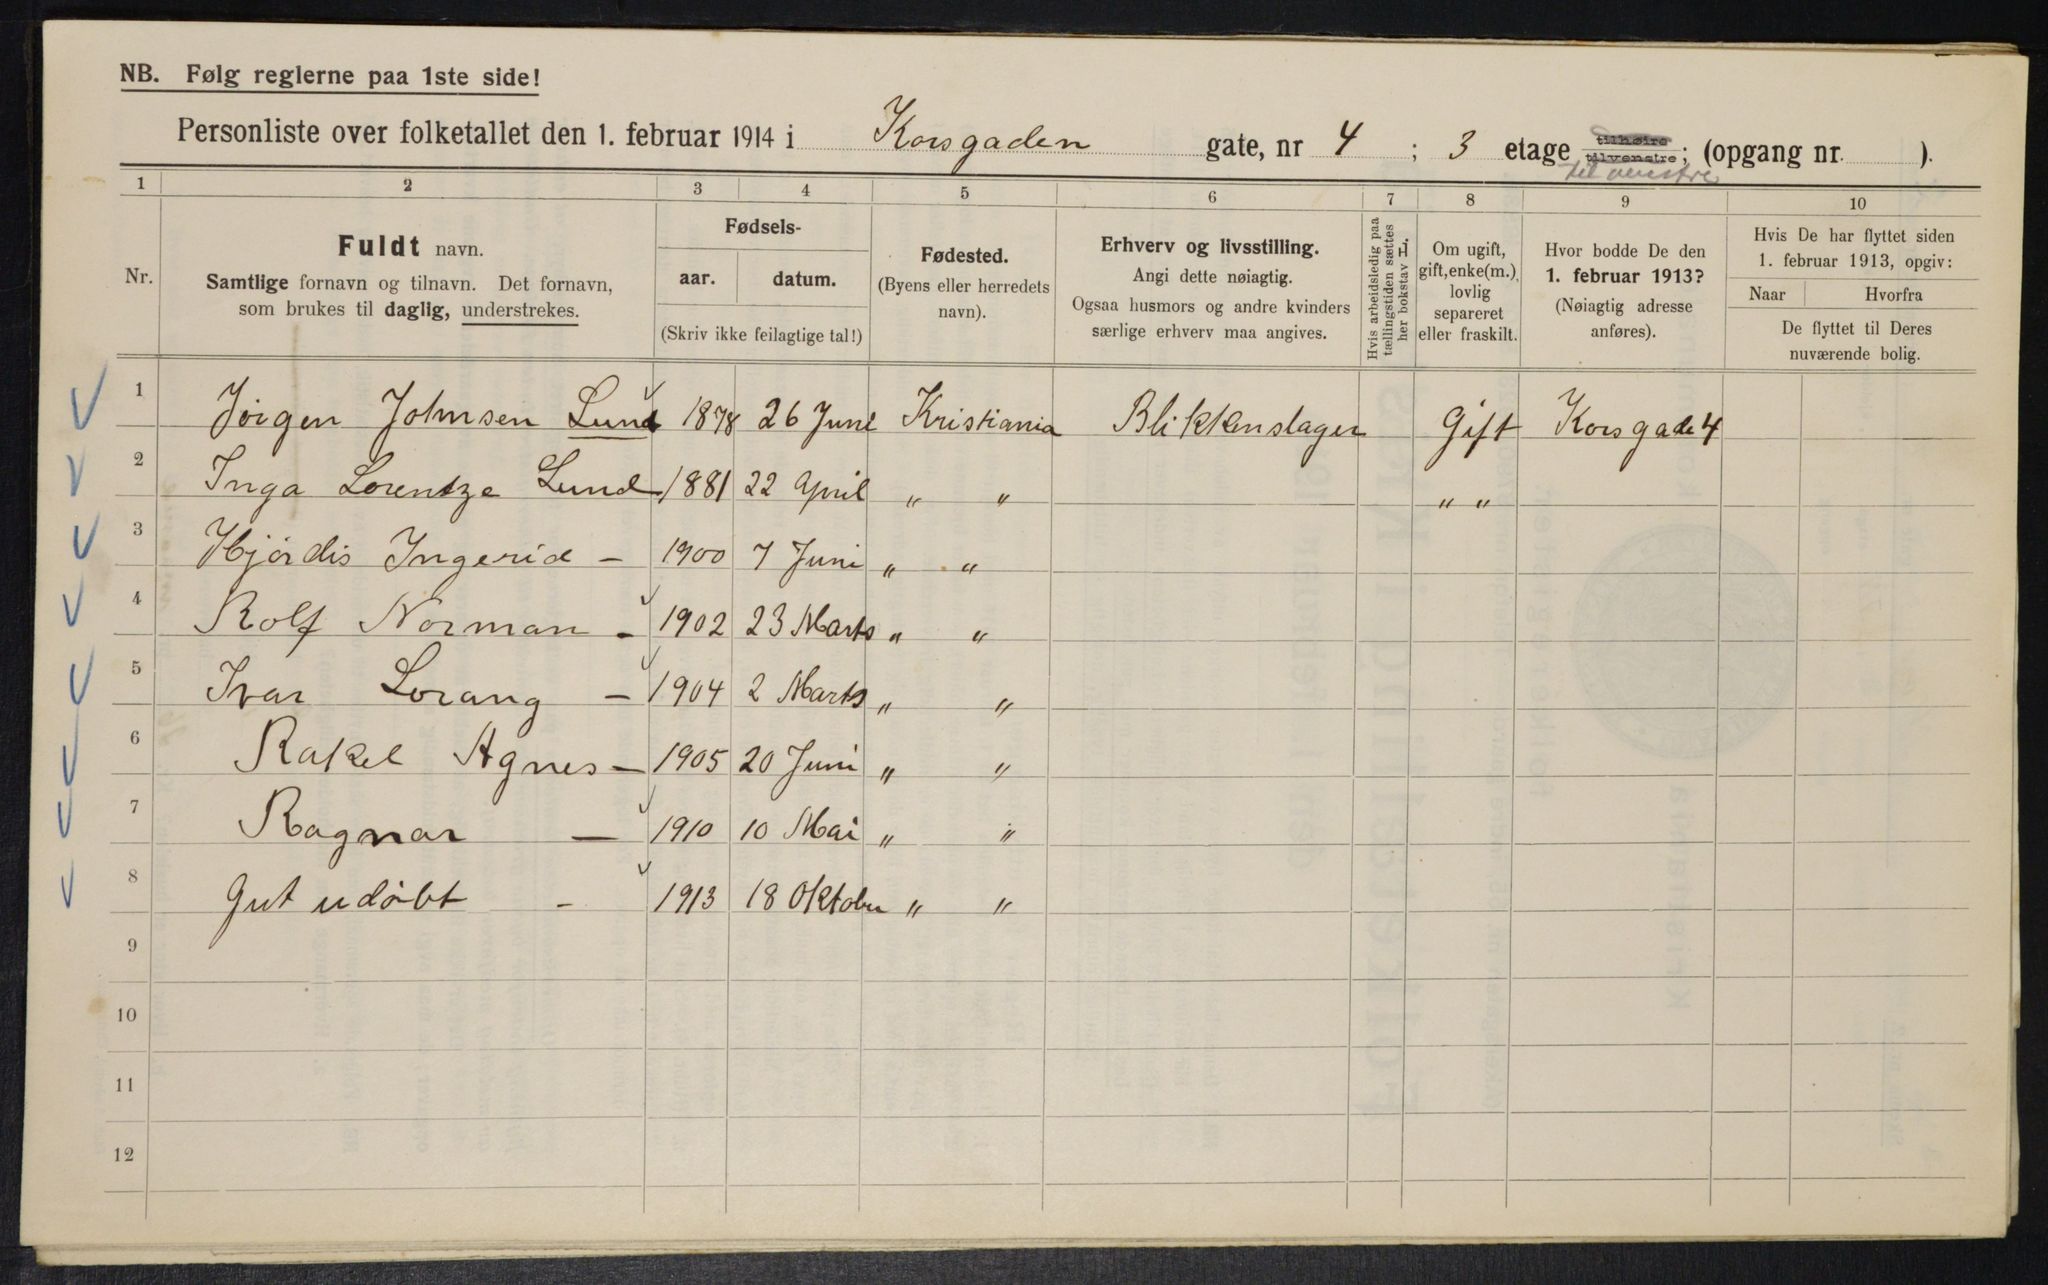 NB. Følg reglerne paa 1ste side!
Personliste over folketallet den 1. februar 1914 i Korsgaden gate, nr 4 ; 3 etage tilhøire tilvenstre; (opgang nr. ).
til venstre
1 2 3 4 5 6 7 8 9 10
Nr.
Fuldt navn.
Samtlige fornavn og tilnavn. Det fornavn,
som brukes til daglig, understrekes.
Fødsels-
aar. datum.
(Skriv ikke feilagtige tal!)
Fødested.
(Byens eller herredets
navn).
Erhverv og livsstilling.
Angi dette nøiagtig.
Ogsaa husmors og andre kvinders
særlige erhverv maa angives.
Hvis arbeidsledig paa
tællingstiden sættes
her bokstav H.
Om ugift,
gift, enke(m.),
lovlig
separeret
eller fraskilt.
Hvor bodde De den
1. februar 1913?
(Nøiagtig adresse
anføres).
Hvis De har flyttet siden
1. februar 1913, opgiv:
Naar Hvorfra
De flyttet til Deres
nuværende bolig.
1 Jørgen Johnsen Lund 1878 26 Juni Kristiania Blikkenslager Gift Korsgade 4
2 Inga Lorentze Lund 1881 22 April " " " "
3 Hjørdis Ingerid - 1900 7 Juni " "
4 Rolf Norman - 1902 23 Marts " "
5 Ivar Lorang - 1904 2 Marts " "
6 Rakel Agnes - 1905 20 Juni " "
7 Ragnar - 1910 10 Mai " "
8 Gut udøbt - 1913 18 Oktober " "
9
10
11
12